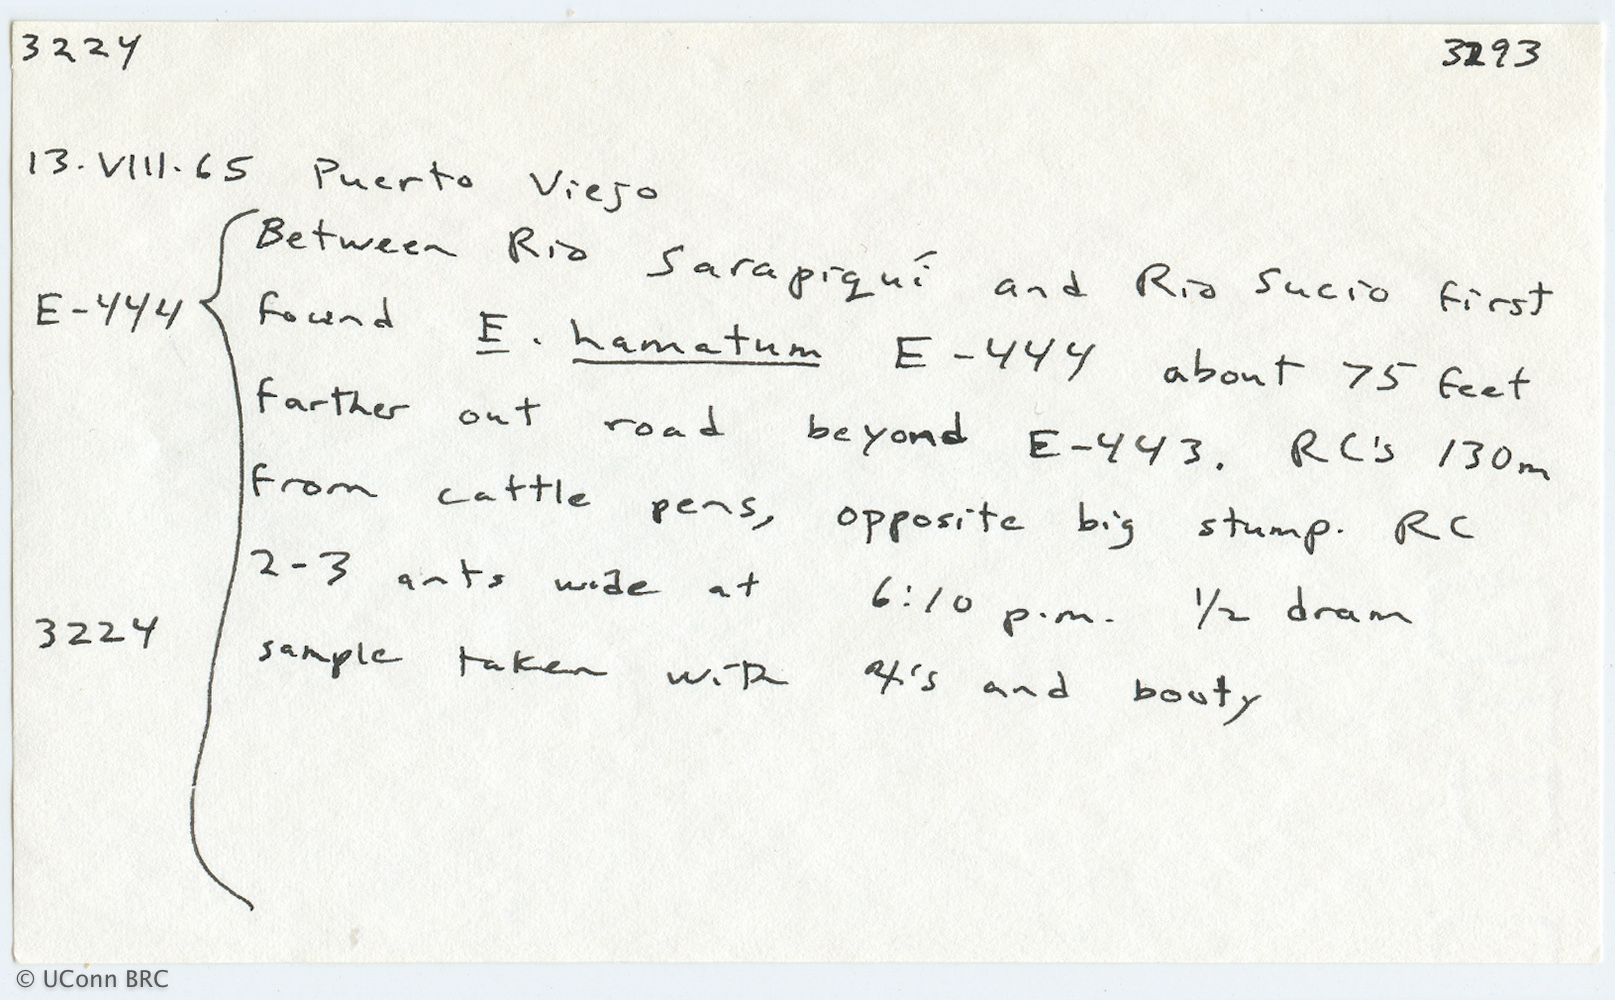 3224 3293
13.VIII.65 Puerto Viejo
Between Rio Sarapiquí and Rio Sucio first
E-444 found E. hamatum E-444 about 75 feet
farther out road beyond E-443. RC's 130m
from cattle pens, opposite big stump. RC
2-3 ants wide at 6:10 p.m. 1/2 dram
3224 sample taken with and booty
© UConn BRC